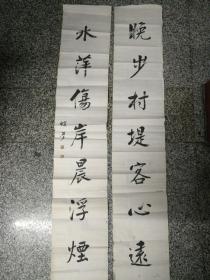 晚步村堤客心遠
水萍傷岸晨浮煙